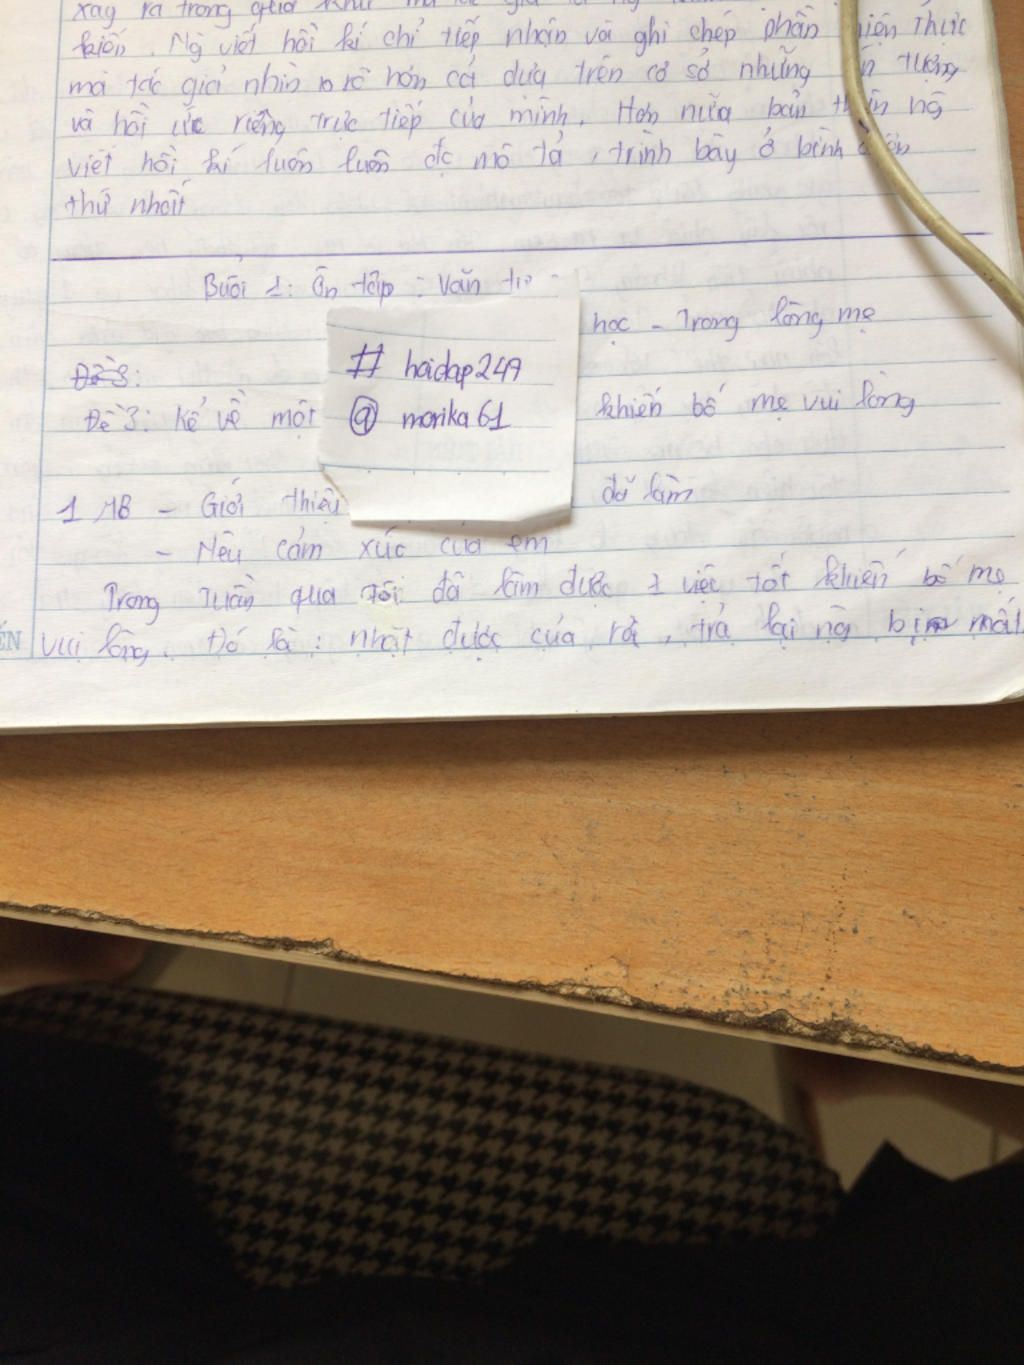 xảy ra trong quá
kiến. Ng viết hồi kí chỉ tiếp nhận và ghi chép phần hiện thực
mà tác giả nhìn rõ hơn cả dựa trên cơ sở những ấn tượng
và hồi ức riêng trực tiếp của mình. Hơn nữa bản thân ng
viết hồi kí luôn luôn đc mô tả, trình bày ở bình diện
thứ nhất
Buổi 1: Ôn tập: Văn
học - Trong lòng mẹ
Đề 3:
Đề 3: Kể về một khiến bố mẹ vui lòng
# hoidap247
@ monika61
1 MB - Giới thiệu đã làm
- Nêu cảm xúc của em
Trong tuần qua tôi đã làm được 1 việc tốt khiến bố mẹ
vui lòng. Đó là: nhặt được của rơi, trả lại ng bị mất